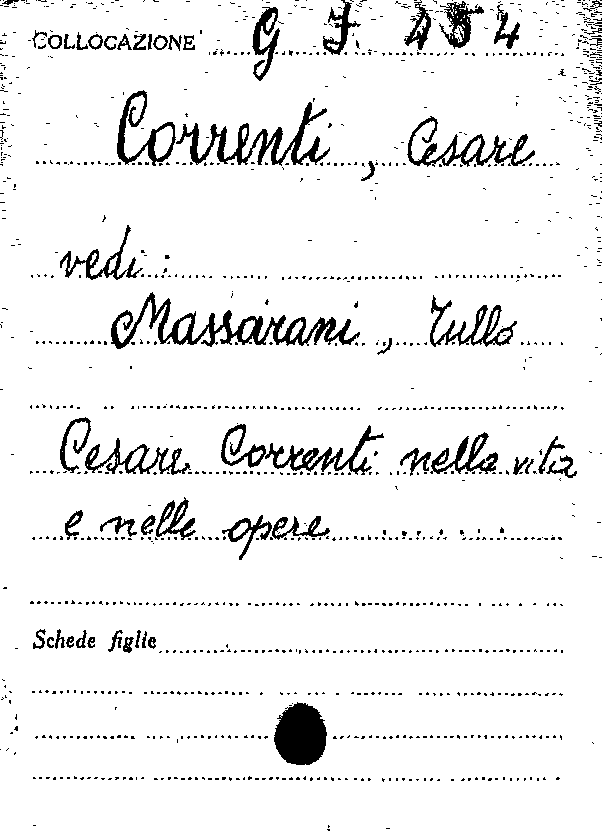 COLLOCAZIONE G. J. 454
Correnti, Cesare
vedi:
Massarani, Tullo
Cesare Correnti nella vita
e nelle opere .......
Schede figlie